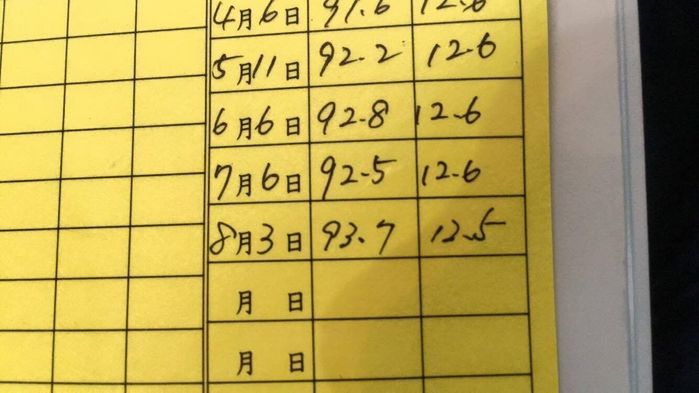 4月6日 91.6 12.6
5月11日 92.2 12.6
6月6日 92.8 12.6
7月6日 92.5 12.6
8月3日 93.7 12.5
月 日
月 日